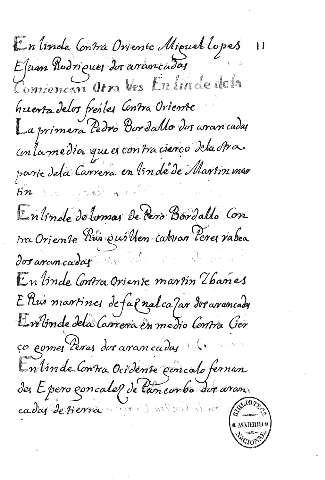 En linde Contra Oriente Miguel lopes 11
E Juan Rodrigues dos arancadas
Comiencan Otra Ves En linde dela
huerta delos freiles Contra Oriente
La primera Pedro Bordallo dos arancadas
en la media que es contra cierço dela otra
parte dela Carrera en linde de Martin mar
tin
En linde de lomas de Pero Bordallo Con
tra Oriente Rui guillen Peres
dos arancadas
En linde Contra Oriente martin Ibañes
E Rui martines de faznalcazar dos arancadas
En linde dela Carrera en medio Contra Cier
ço gomes Peras dos arancadas
En linde Contra Ocidente gonçalo fernan
des E pero gonçalez de Pancorbo dos aran
cadas de tierra
BIBLIOTECA
NACIONAL